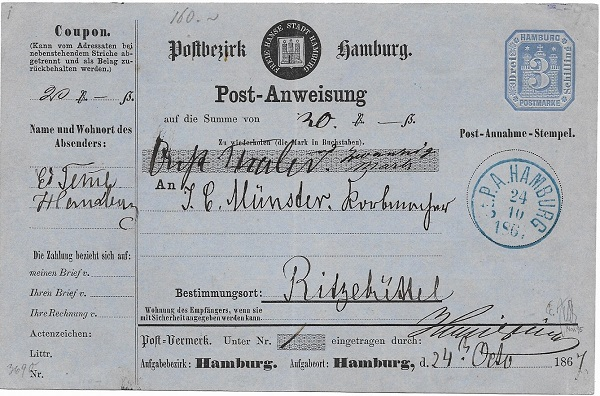 160.~
Coupon.
(Kann vom Adressaten bei
nebenstehendem Striche ab-
getrennt und als Belag zu-
rückbehalten werden.)
20 ₰. — ß.
Name und Wohnort des
Absenders:
Hamburg
Die Zahlung bezieht sich auf:
meinen Brief v.
Ihren Brief v.
Ihre Rechnung v.
Actenzeichen:
Littr.
Nr.
Postbezirk Hamburg.
FREIE HANSE STADT HAMBURG
Post-Anweisung
auf die Summe von 20. ₰. — ß.
Zu wiederholen (die Mark in Buchstaben).
Acht Thaler. zwanzig
Mark
An J. C. Münster. Korbmacher
Bestimmungsort: Ritzebüttel
Wohnung des Empfängers, wenn sie
mit Sicherheit angegeben werden kann.
Post-Vermerk. Unter Nr. 1 eingetragen durch:
Aufgabebezirk: Hamburg. Aufgabeort: Hamburg, d. 24 Octo 1867
HAMBURG
Drei 3 Schilling
POSTMARKE
Post-Annahme-Stempel.
P.A. HAMBURG
24
10
186